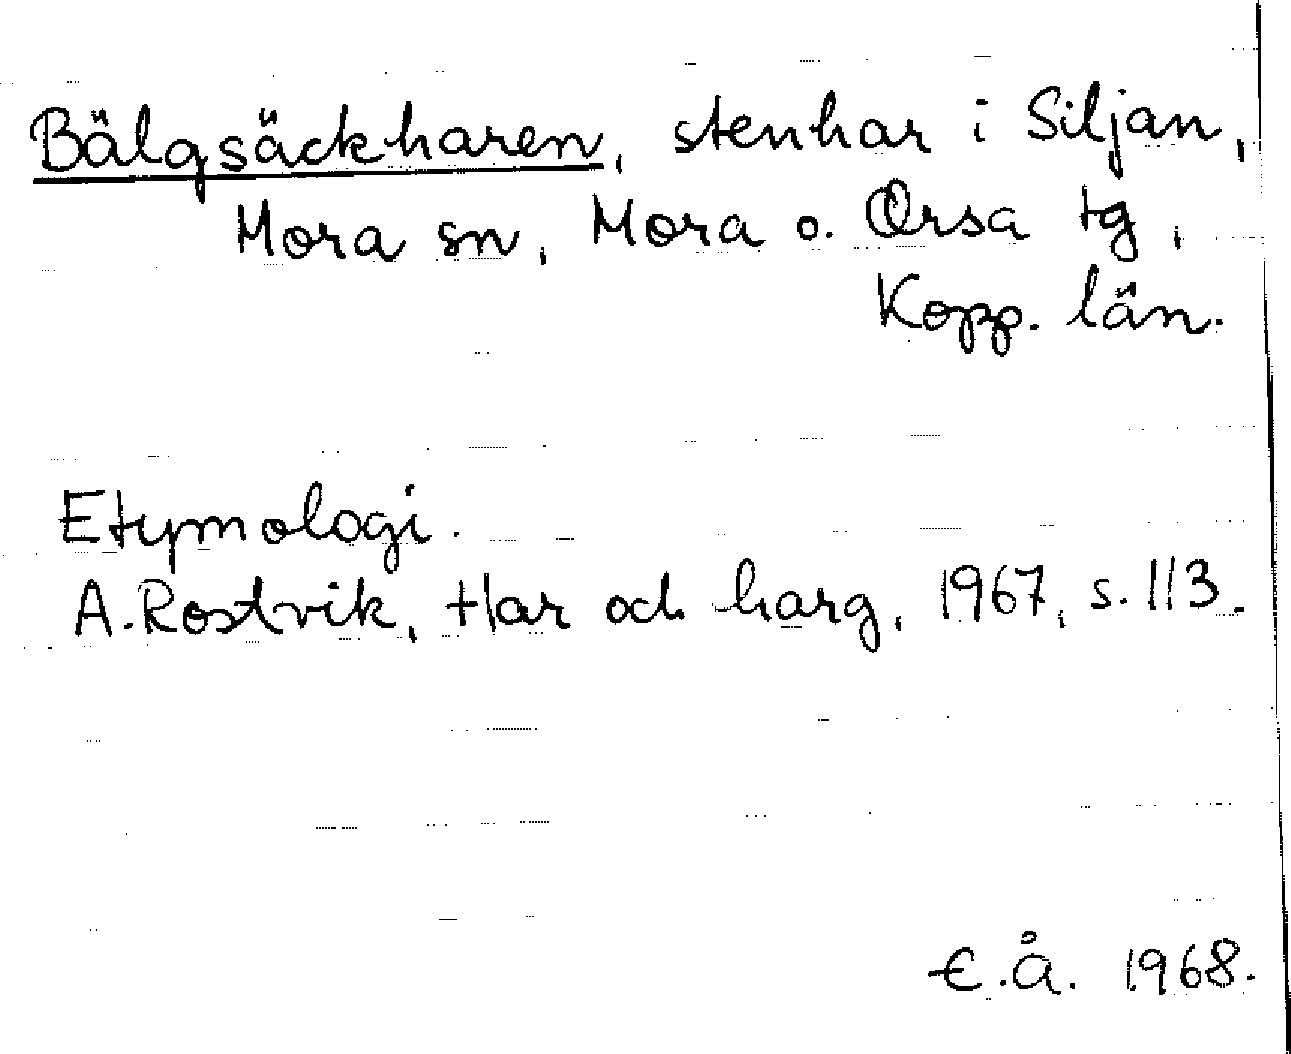 Bälgsäckharen, stenhar i Siljan,
Mora sn, Mora o. Orsa tg,
Kopp. län.
Etymologi.
A. Rostvik, Har och harg, 1967, s. 113.
E.Å. 1968.